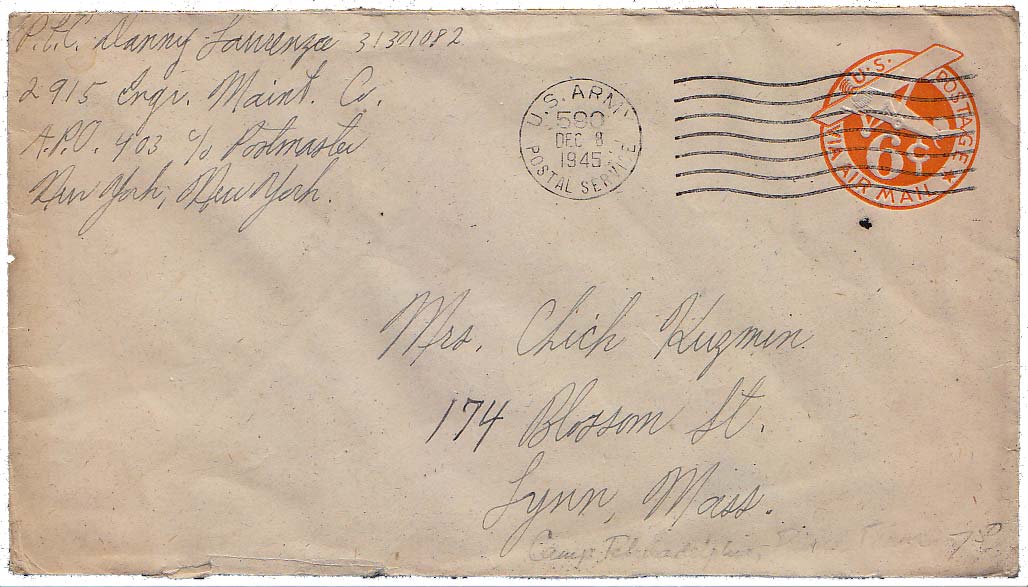 P.F.C. Danny Laurenza 31301082
2915 Engr. Maint. Co.
A.P.O. 403 c/o Postmaster
New York, New York.
U.S. ARMY
580
DEC 8
1945
POSTAL SERVICE
U.S. POSTAGE
6¢
VIA AIR MAIL
Mrs. Chich Kuzmin
174 Blossom St.
Lynn, Mass.
Camp Philadelphia,